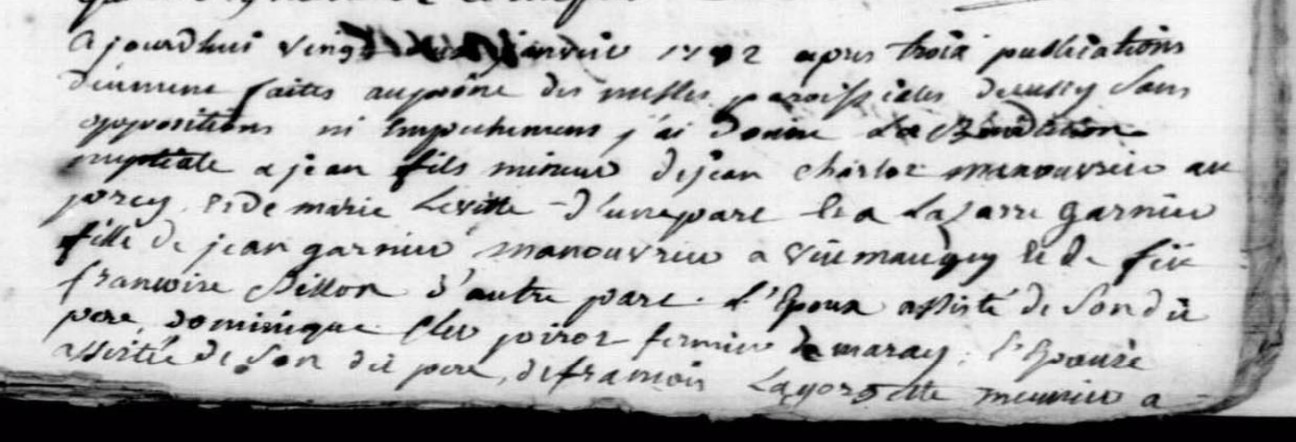 ajourdhui vingt janvier 1792 apres trois publications
faites au prône des messes paroissiales sans
oppositions ni empechemens j'ai donné la Bénédiction
nuptiale a jean fils mineur de jean charlot manouvrier au
et de marie d'une part et a Lazarre garnier
fille de jean garnier manouvrier a et de
françoise Billon d'autre part. l'Epoux assisté de son dit
pere, dominique poirot fermier de maray; l'Epouse
assistée de son dit pere, de francois meunier a